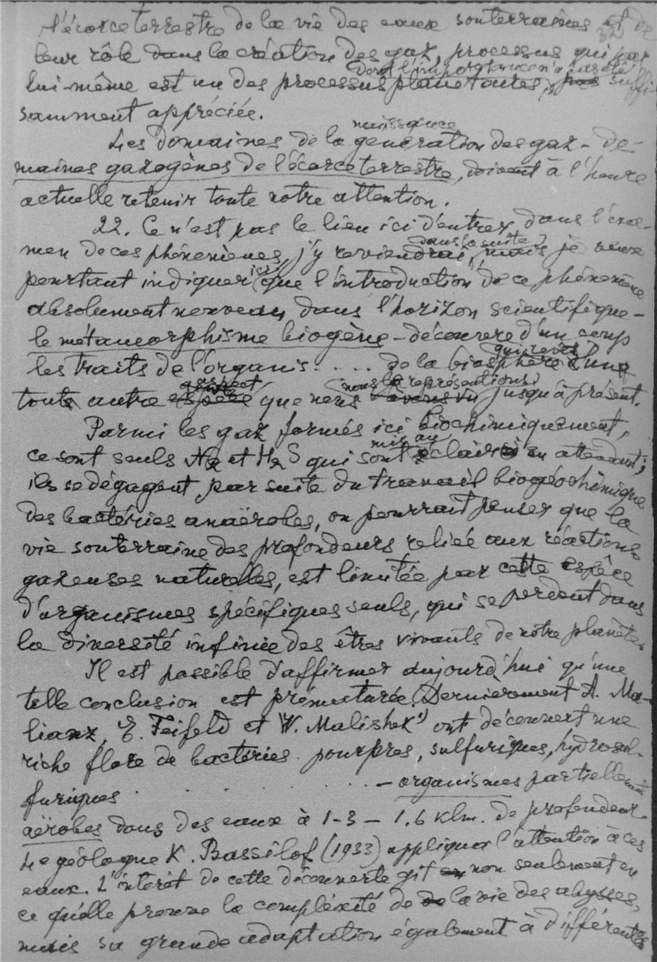 l'écorce terrestre de la vie des eaux souterraines et de
leur rôle dans la création des gaz, processus qui par
dont l'importance n'a pas été
lui-même est un des processus planétaires, suffi-
samment appréciée.
naissance
Les domaines de la génération des gaz - do-
maines gazogènes de l'écorce terrestre, doivent à l'heure
actuelle retenir toute notre attention.
22. Ce n'est pas le lieu ici d'entrer dans l'exa-
men de ces phénomènes, j'y reviendrai dans la suite, mais je veux
pourtant indiquer ici que l'introduction de ce phénomène
absolument nouveau dans l'horizon scientifique -
le métamorphisme biogène - découvre d'un coup
les traits de l'organis.... de la biosphère qui revêt d'une
aspect nous la représentions
toute autre espèce que nous avons vu jusqu'à présent.
Parmi les gaz formés ici biochimiquement,
ce sont seuls N2 et H2S qui sont mis au clair en attendant;
ils se dégagent par suite du travail biogéochimique
des bactéries anaérobes, on pourrait penser que la
vie souterraine des profondeurs reliée aux réactions
gazeuses naturelles, est limitée par cette espèce
d'organismes spécifiques seuls, qui se perdent dans
la diversité infinie des êtres vivants de notre planète.
Il est possible d'affirmer aujourd'hui qu'une
telle conclusion est prématurée. Dernièrement A. Ma-
lianz, Feifeld et V. Malishek 1) ont découvert une
riche flore de bactéries pourpres, sulfuriques, hydrosul-
furiques . . . . . . . . - organismes partiellement
aérobes dans des eaux à 1-3 - 1.6 klm. de profondeur.
Le géologue K. Bassilof (1933) appliqua l'attention à ces
eaux. L'intérêt de cette découverte gît non seulement en
ce qu'elle prouve la compléxité de la vie des abysses,
mais sa grande adaptation également à différentes